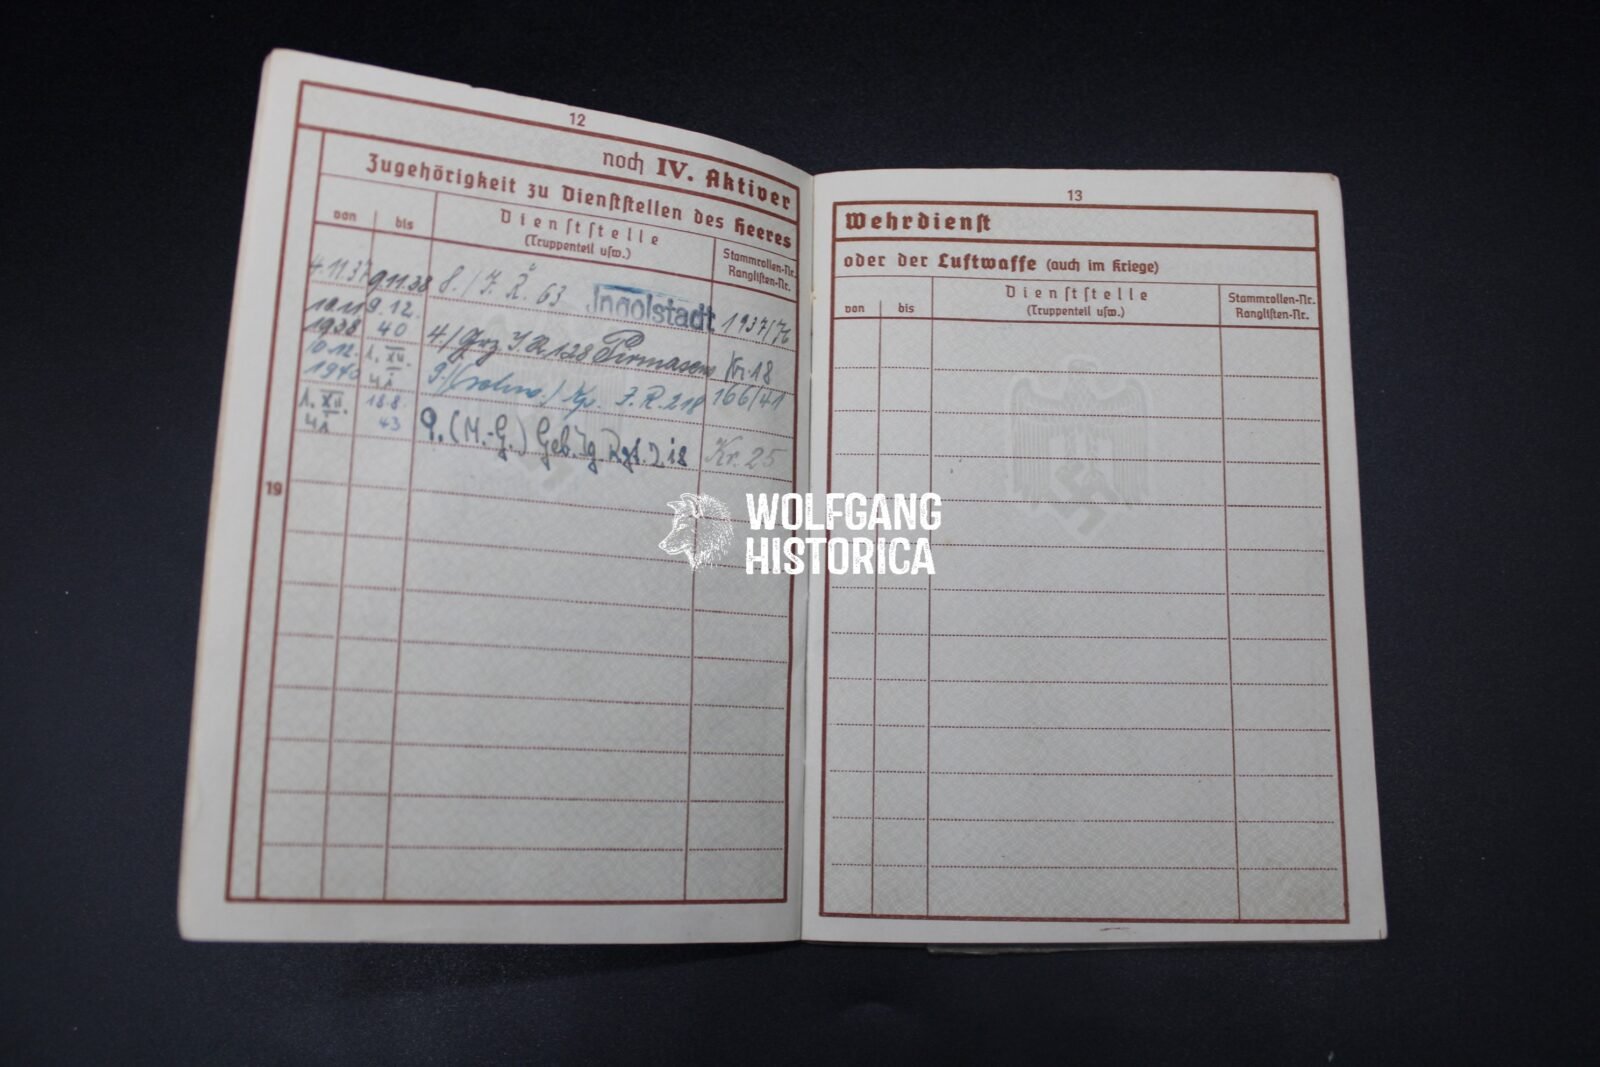 12
noch IV. Aktiver
Zugehörigkeit zu Dienststellen des Heeres
von bis Dienststelle Stammrollen-Nr.
(Truppenteil usw.) Ranglisten-Nr.
4.11.37 9.11.38 8./J.R. 63 Ingolstadt 1937/76
10.11. 9.12.
1938 40 4./Grz J.R 128 Pirmasens Nr. 18
10.12. 1. XII. 9./ Kp. J.R. 218 166/41
1940 41
1. XII. 18.8. 9. (M.-G.) Geb. Jg. Rgt. 218 Kr. 25
41 43
19
WOLFGANG
HISTORICA
13
Wehrdienst
oder der Luftwaffe (auch im Kriege)
von bis Dienststelle Stammrollen-Nr.
(Truppenteil usw.) Ranglisten-Nr.